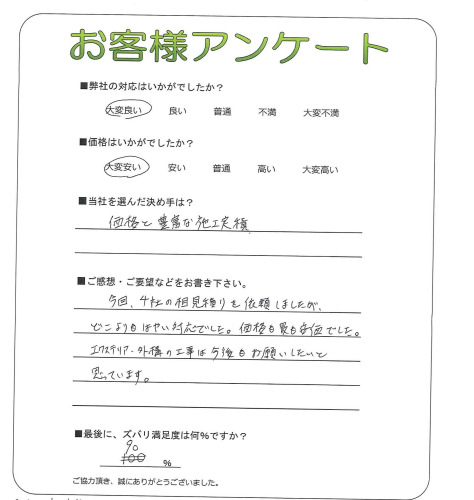 お客様アンケート
■弊社の対応はいかがでしたか?
大変良い 良い 普通 不満 大変不満
■価格はいかがでしたか?
大変安い 安い 普通 高い 大変高い
■当社を選んだ決め手は?
価格と豊富な施工実績
■ご感想・ご要望などをお書き下さい。
今回、4社の相見積りを依頼しましたが、
どこよりもはやい対応でした。価格も最も安価でした。
エクステリア・外構の工事は今後もお願いしたいと
思っています。
■最後に、ズバリ満足度は何%ですか?
90
100 %
ご協力頂き、誠にありがとうございました。